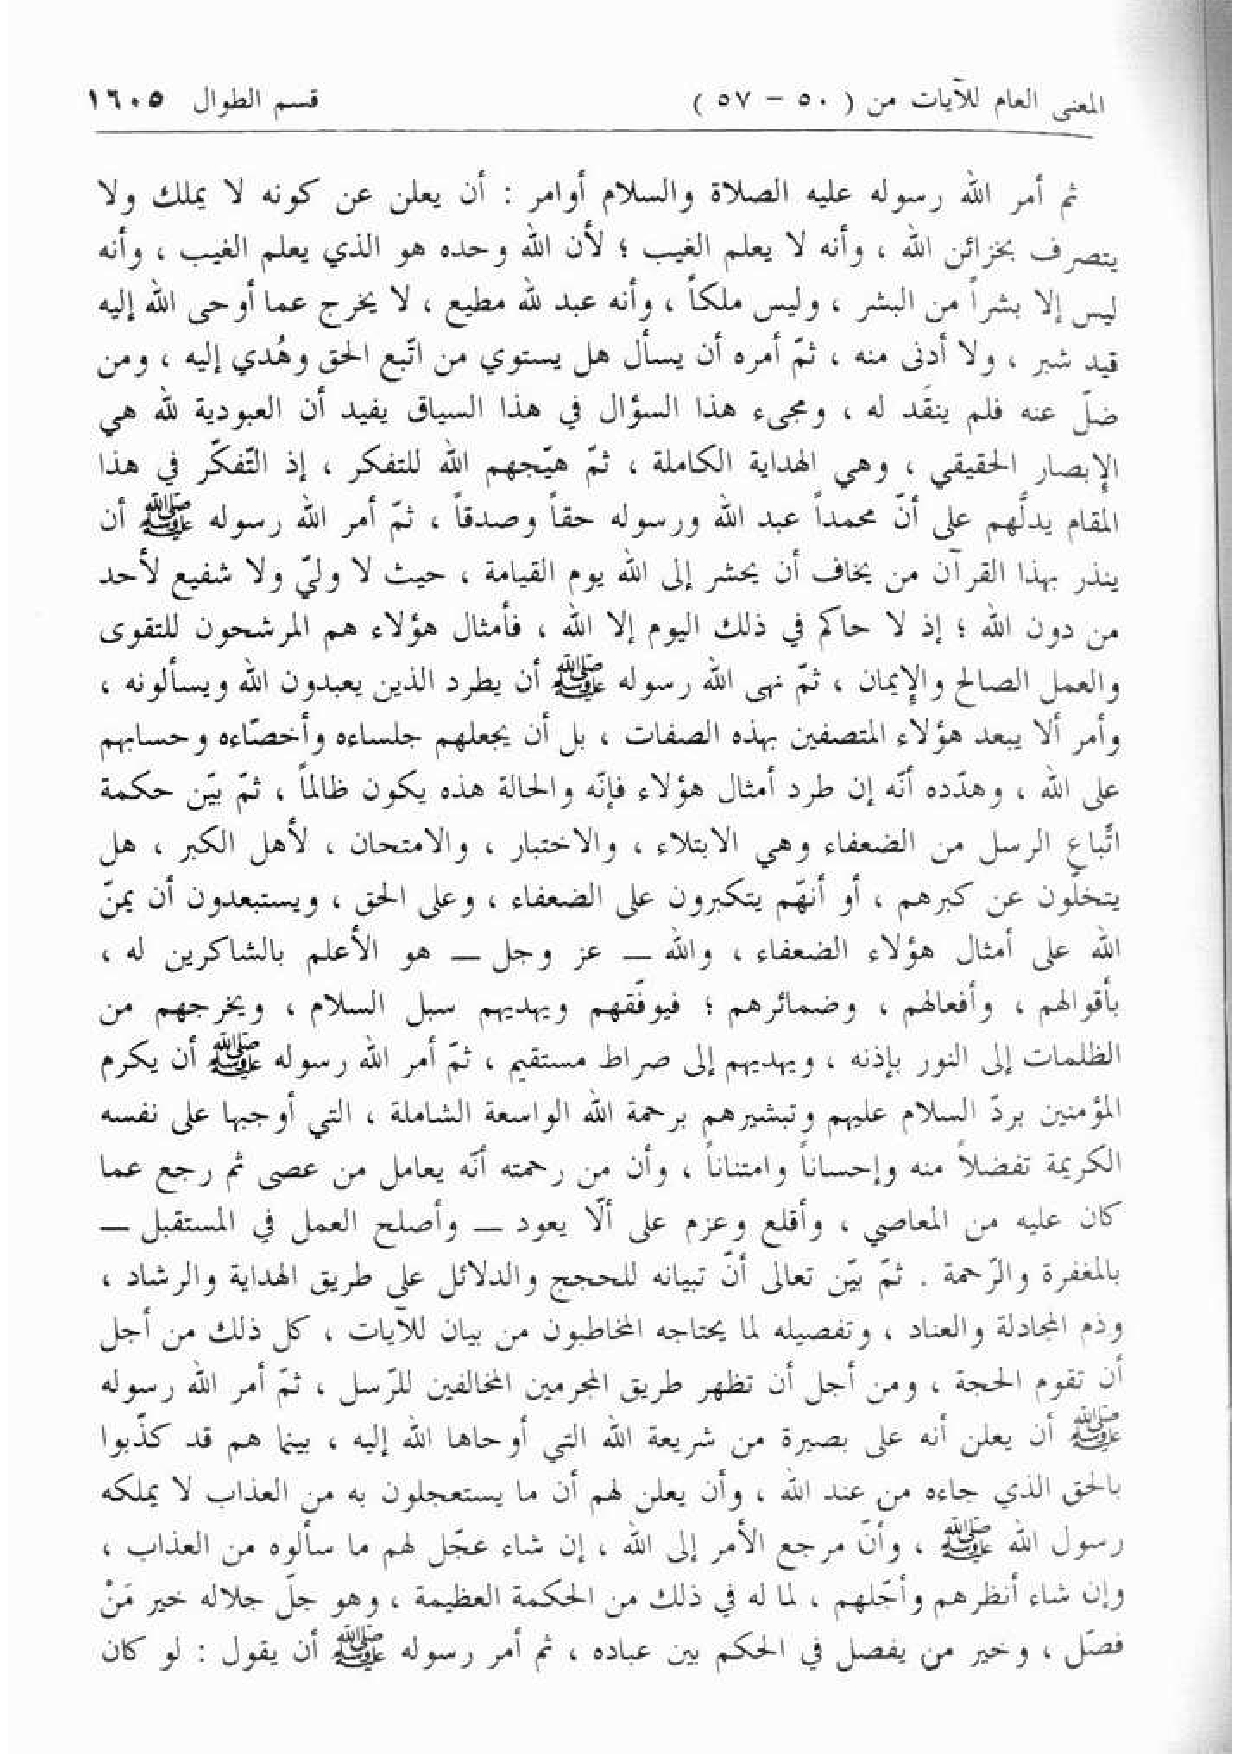 المعنى العام للآيات من ( ٥٠ – ٥٧ )
قسم الطوال ١٦٠٥
ثم أمر الله رسوله عليه الصلاة والسلام أوامر : أن يعلن عن كونه لا يملك ولا
يتصرف بخزائن الله ، وأنه لا يعلم الغيب ؛ لأن الله وحده هو الذي يعلم الغيب ، وأنه
ليس إلا بشراً من البشر ، وليس ملكاً ، وأنه عبد لله مطيع ، لا يخرج عما أوحى الله إليه
قيد شبر ، ولا أدنى منه ، ثمّ أمره أن يسأل هل يستوي من اتّبع الحق وهُدي إليه ، ومن
ضلّ عنه فلم ينقَد له ، ومجيء هذا السؤال في هذا السياق يفيد أن العبودية لله هي
الإبصار الحقيقي ، وهي الهداية الكاملة ، ثمّ هيّجهم الله للتفكر ، إذ التّفكّر في هذا
المقام يدلّهم على أنّ محمداً عبد الله ورسوله حقاً وصدقاً ، ثمّ أمر الله رسوله ﷺ أن
ينذر بهذا القرآن من يخاف أن يحشر إلى الله يوم القيامة ، حيث لا وليّ ولا شفيع لأحد
من دون الله ؛ إذ لا حاكم في ذلك اليوم إلا الله ، فأمثال هؤلاء هم المرشحون للتقوى
والعمل الصالح والإيمان ، ثمّ نهى الله رسوله ﷺ أن يطرد الذين يعبدون الله ويسألونه ،
وأمر ألا يبعد هؤلاء المتصفين بهذه الصفات ، بل أن يجعلهم جلساءه وأخصّاءه وحسابهم
على الله ، وهدّده أنّه إن طرد أمثال هؤلاء فإنّه والحالة هذه يكون ظالماً ، ثمّ بيّن حكمة
اتّباع الرسل من الضعفاء وهي الابتلاء ، والاختبار ، والامتحان ، لأهل الكبر ، هل
يتخلّون عن كبرهم ، أو أنهّم يتكبرون على الضعفاء ، وعلى الحق ، ويستبعدون أن يمنّ
الله على أمثال هؤلاء الضعفاء ، والله – عز وجل – هو الأعلم بالشاكرين له ،
بأقوالهم ، وأفعالهم ، وضمائرهم ؛ فيوفّقهم ويهديهم سبل السلام ، ويخرجهم من
الظلمات إلى النور بإذنه ، ويهديهم إلى صراط مستقيم ، ثمّ أمر الله رسوله ﷺ أن يكرم
المؤمنين بردّ السلام عليهم وتبشيرهم برحمة الله الواسعة الشاملة ، التي أوجبها على نفسه
الكريمة تفضلاً منه وإحساناً وامتناناً ، وأن من رحمته أنّه يعامل من عصى ثم رجع عما
كان عليه من المعاصي ، وأقلع وعزم على ألّا يعود – وأصلح العمل في المستقبل –
بالمغفرة والرّحمة . ثمّ بيّن تعالى أنّ تبيانه للحجج والدلائل على طريق الهداية والرشاد ،
وذم المجادلة والعناد ، وتفصيله لما يحتاجه المخاطبون من بيان للآيات ، كل ذلك من أجل
أن تقوم الحجة ، ومن أجل أن تظهر طريق المجرمين المخالفين للرّسل ، ثمّ أمر الله رسوله
ﷺ أن يعلن أنه على بصيرة من شريعة الله التي أوحاها الله إليه ، بينما هم قد كذّبوا
بالحق الذي جاءه من عند الله ، وأن يعلن لهم أن ما يستعجلون به من العذاب لا يملكه
رسول الله ﷺ ، وأنّ مرجع الأمر إلى الله ، إن شاء عجّل لهم ما سألوه من العذاب ،
وإن شاء أنظرهم وأجّلهم ، لما له في ذلك من الحكمة العظيمة ، وهو جلّ جلاله خير مَنْ
فصّل ، وخير من يفصل في الحكم بين عباده ، ثم أمر رسوله ﷺ أن يقول : لو كان